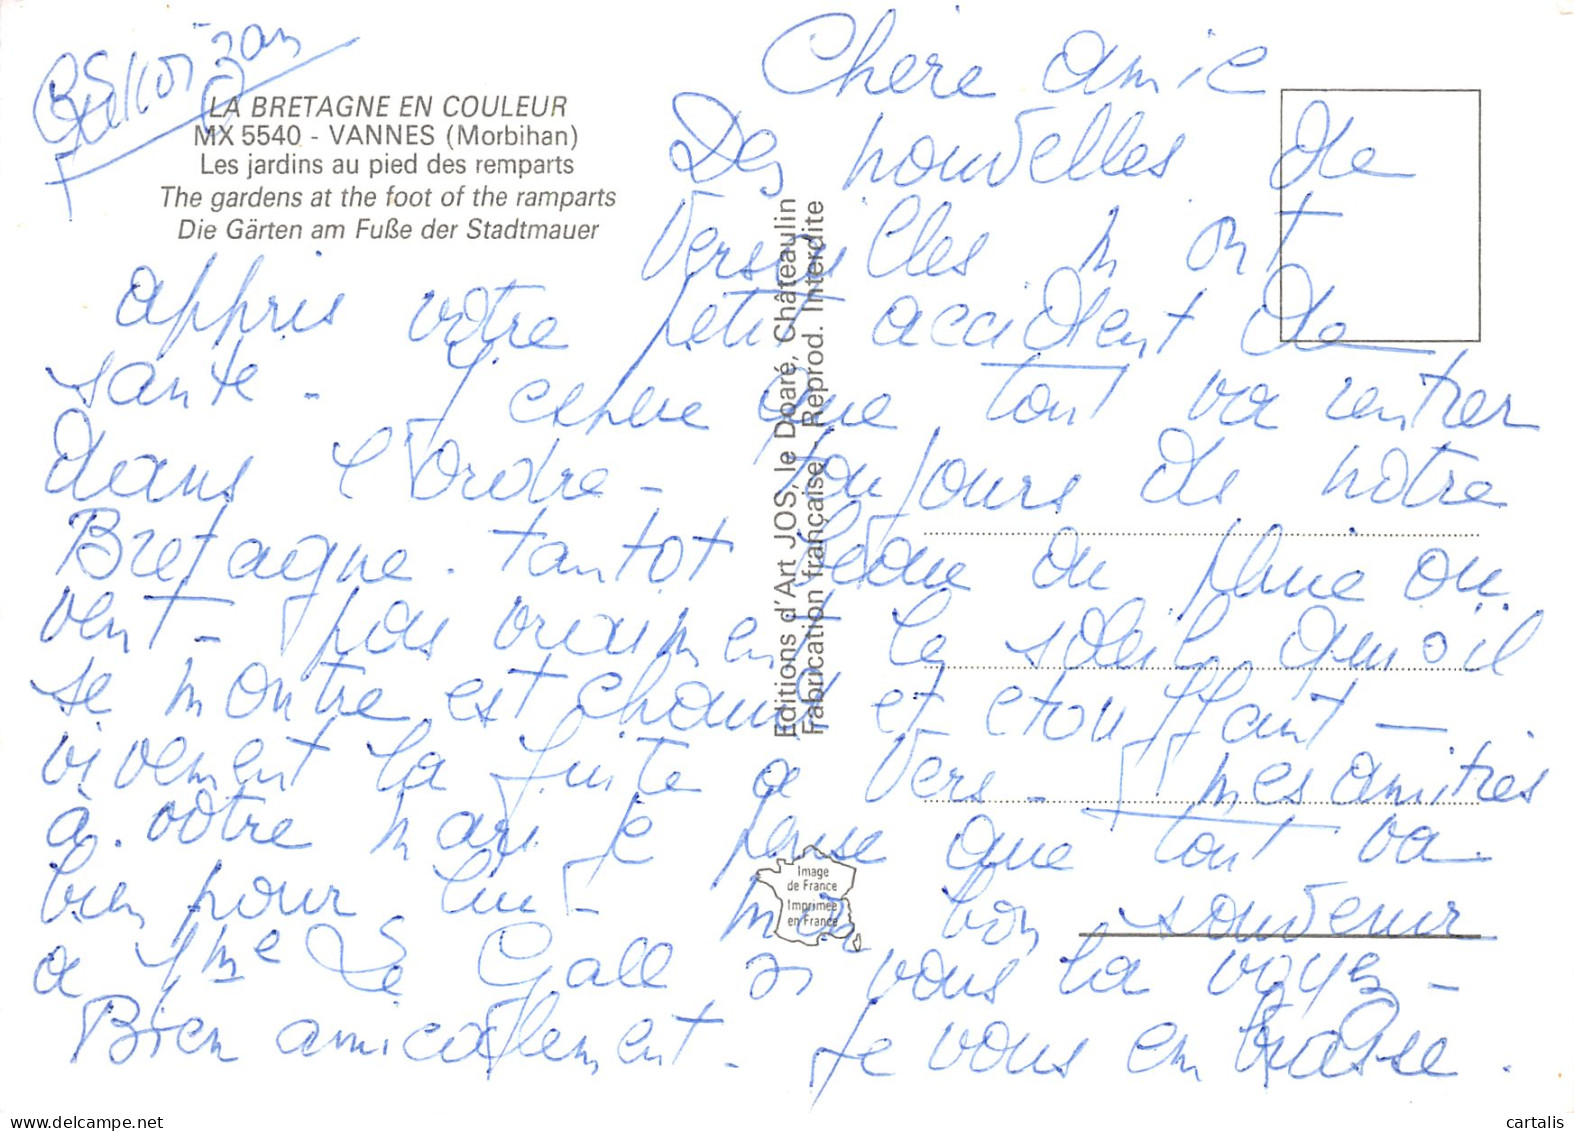 LA BRETAGNE EN COULEUR
MX 5540 - VANNES (Morbihan)
Les jardins au pied des remparts
The gardens at the foot of the ramparts
Die Gärten am Fuße der Stadtmauer
Chère amie
Des nouvelles de
Versailles m ont
appris votre petit accident de
santé - J'espère que tout va rentrer
dans l'ordre - toujours de notre
Bretagne. tantot de la pluie ou
vent - pas vraiment le soleil, quoi
se montre est chaud et etouffant -
vivement la fuite a Vers - mes amitiés
a votre mari je pense que tout va
bien pour lui - mon bon souvenir
a Mme Le Gall si vous la voyez -
Bien amicalement. Je vous embrasse.
Editions d'Art JOS, le Doaré, Châteaulin
Fabrication française - Reprod. Interdite
Image
de France
Imprimée
en France
cartalis